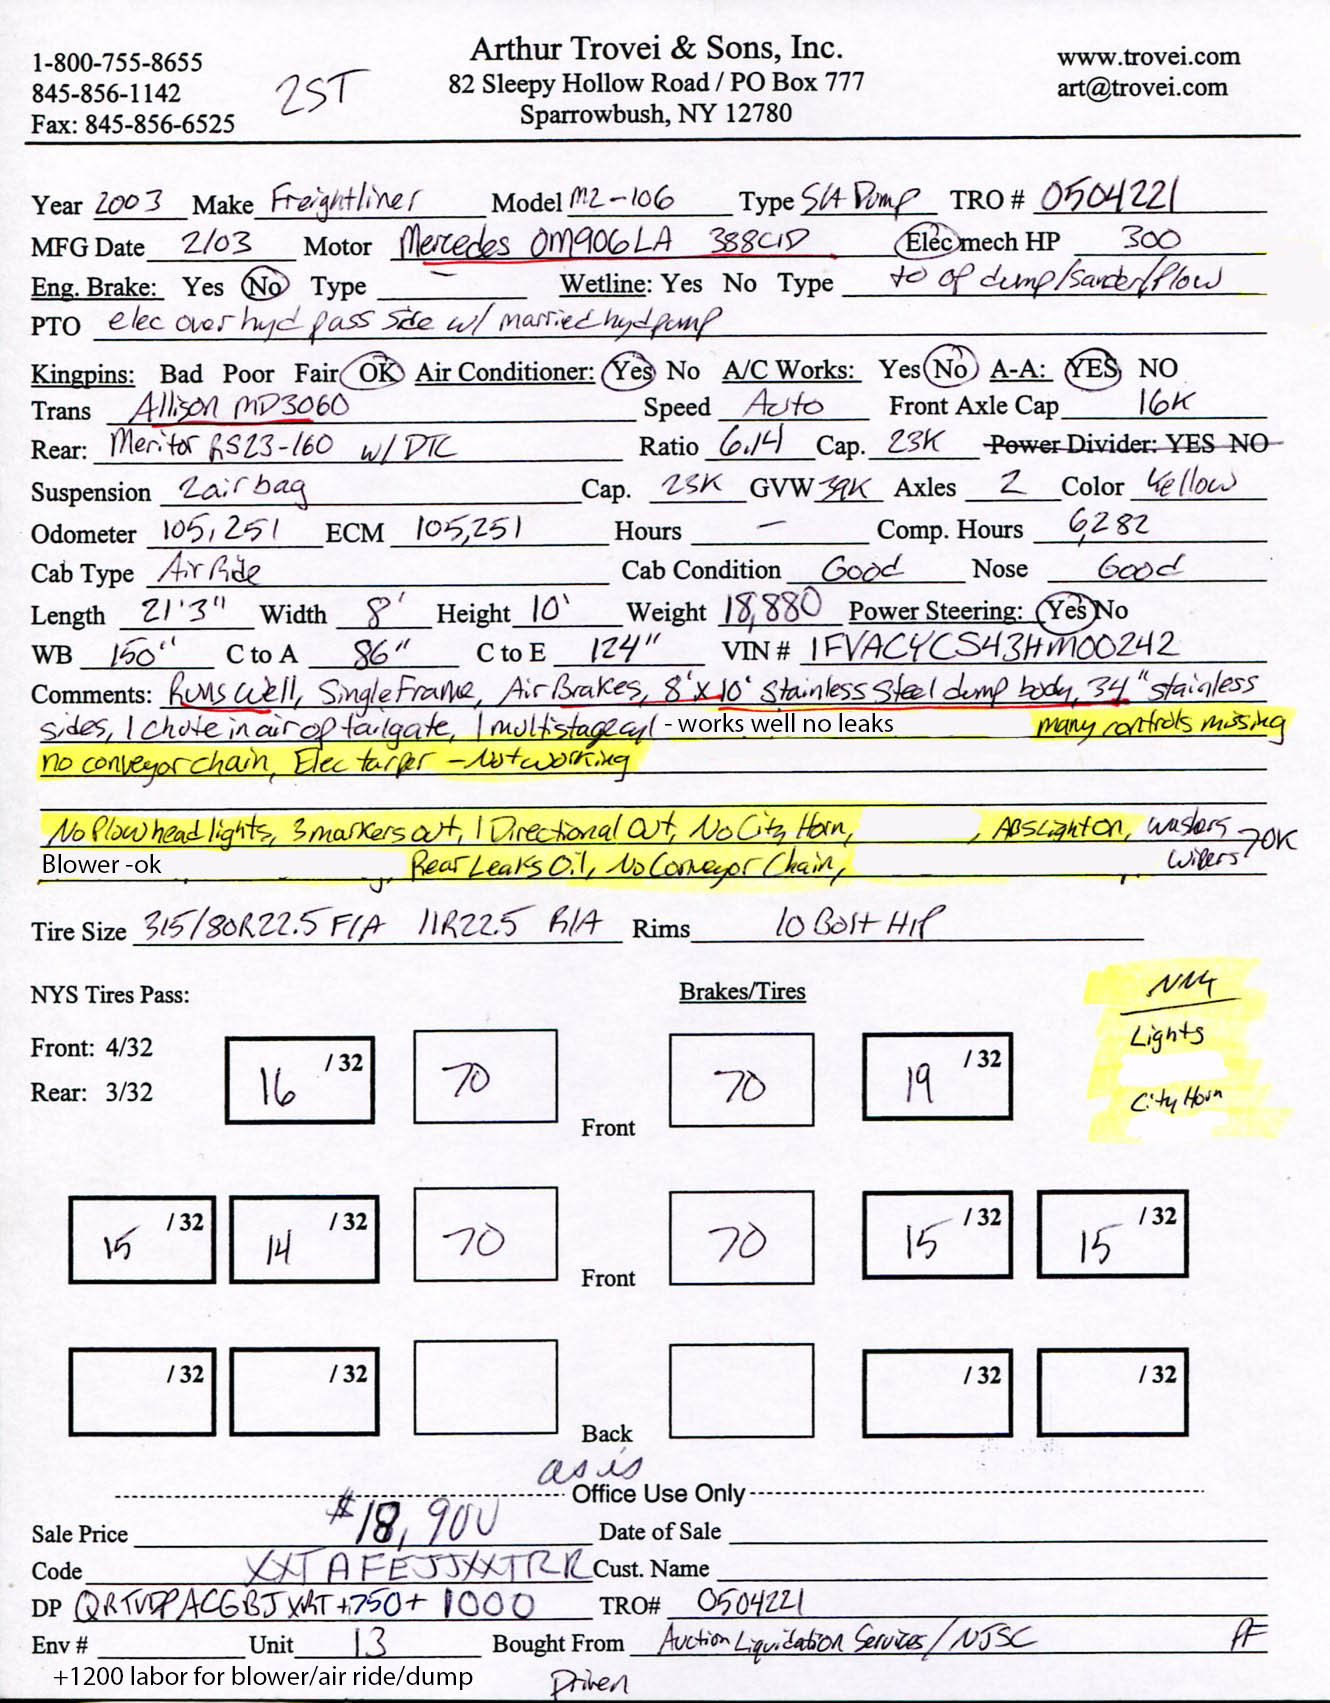 1-800-755-8655
845-856-1142
Fax: 845-856-6525
2ST
Arthur Trovei & Sons, Inc.
82 Sleepy Hollow Road / PO Box 777
Sparrowbush, NY 12780
www.trovei.com
art@trovei.com
Year 2003 Make Freightliner Model M2-106 Type S/A Dump TRO # 0504221
MFG Date 2/03 Motor Mercedes OM906LA 388CID Elec mech HP 300
Eng. Brake: Yes No Type Wetline: Yes No Type to op dump/sander/plow
PTO elec over hyd pass side w/ married hyd pump
Kingpins: Bad Poor Fair OK Air Conditioner: Yes No A/C Works: Yes No A-A: YES NO
Trans Allison MD3060 Speed Auto Front Axle Cap 16K
Rear: Meritor RS23-160 w/ DTC Ratio 6.14 Cap. 23K Power Divider: YES NO
Suspension 2 air bag Cap. 23K GVW 39K Axles 2 Color Yellow
Odometer 105,251 ECM 105,251 Hours — Comp. Hours 6,282
Cab Type Air Ride Cab Condition Good Nose Good
Length 21'3" Width 8' Height 10' Weight 18,880 Power Steering: Yes No
WB 150" C to A 86" C to E 124" VIN # 1FVACYCS43HM00242
Comments: Runs well, Single Frame, Air Brakes, 8'x10' Stainless Steel dump body, 34" stainless
sides, 1 chute in air op tailgate, 1 multistage cyl - works well no leaks many controls missing
no conveyor chain, Elec tarper - Not working
No Plow head lights, 3 markers out, 1 Directional Out, No City Horn, , ABS Light on, washers
Blower -ok Rear Leaks Oil, No Conveyor Chain, wipers 70K
Tire Size 315/80R22.5 F/A 11R22.5 R/A Rims 10 Bolt H/P
NYS Tires Pass: Brakes/Tires
Front: 4/32
Rear: 3/32
16 /32 70 Front 70 19 /32
NMG
Lights
City Horn
15 /32 14 /32 70 Front 70 15 /32 15 /32
/32 /32 Back /32 /32
as is
Office Use Only
Sale Price $18,900 Date of Sale
Code XXTAFEJJXXTRR Cust. Name
DP + 1000 TRO# 0504221
Env # Unit 13 Bought From Auction Liquidation Services/NJSC
+1200 labor for blower/air ride/dump
Driven